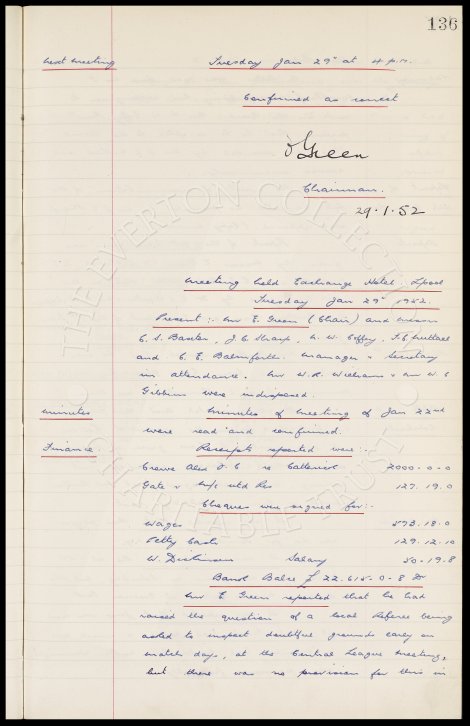 136
Next Meeting Tuesday Jan 29th at 4 p.m.
Confirmed as correct
Green
Chairman.
29.1.52
Meeting held Exchange Hotel, Lpool
Tuesday Jan 29th 1952.
Present:- Mr E. Green (Chair) and Messrs
C. S. Baxter, J. C. Sharp, N. W. Coffey, F. E. Nuttall
and C. E. Balmforth. Manager & Secretary
in attendance. Mr W. R. Williams & Mr W. C
Gibbins were indisposed.
Minutes Minutes of Meeting of Jan 22nd
were read and confirmed.
Finance Receipts reported were:-
Crewe Alex F. C re Catterick 2000-0-0
Gate v utd Res 127.19.0
Cheques were signed for:-
Wages 593.18.0
Petty Cash 129.12.10
W. Dickinson Salary 50-19.8
Bank Balce £ 22.615-0-8 Dr
Mr E. Green reported that he had
raised the question of a local Referee being
asked to inspect doubtful grounds early on
match days, at the Central League Meeting,
but there was no provision for this in
THE EVERTON COLLECTION
CHARITABLE TRUST